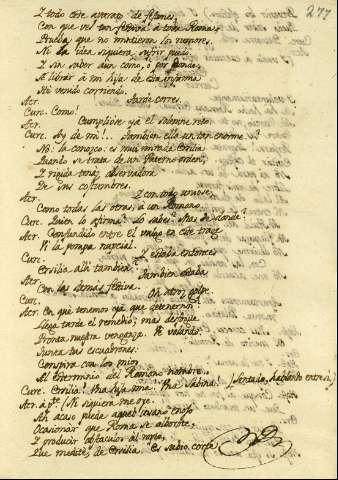 277
Y todo este aparato de
Con que ven festiva a toda Roma,
que no merecieron los honores.
Ni la idea siquiera sufrir puedo.
Y sin saber aun como, o por donde,
A librar a mi hija de esta infamia
He venido corriendo.
Acr. Tarde corres.
Cur. Como?
Acr. Cumpliose ya el solemne rito
Cur. Ay de mi!.. Tambien ella un tan enorme..?
No: la conozco: es muy mirada Ersilia
Quando se trata de un Paterno orden,
Y rigida tenaz observadora
De sus costumbres.
Acr. Y con todo unióse,
Como todas las otras, a un Romano.
Cur. Quien lo afirma? Lo sabes? Mas de donde?
Acr. Confundido entre el vulgo en este trage
Vi la pompa nupcial.
Cur. Y estaba entonces
Ersilia alli tambien?
Acr. Tambien estaba
Con las demas festiva.
Cur. Oh atroz golpe.
Acr. En que tenemos ya que detenernos?
Llega tarde el remedio; mas disponte
Pronta nuestra venganza. Ve volando:
Junta tus esquadrones:
Conspira con los mios
Al exterminio del Romano nombre.
Cur. Ersilia! Una hija mia! Una Sabina! (Sentado, hablando entre si)
Acr. ap.te (Ni siquiera me oye.
Ah acaso pueda aquel insano enojo
Ocasionar que Roma se alborote,
Y producir obstaculos al rapto,
Que medité de Ersilia. Es sabio corte